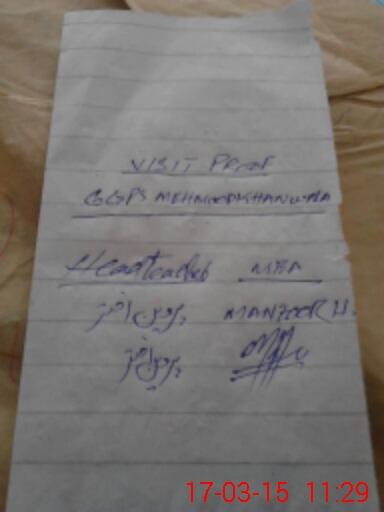 VISIT PROOF
GGPS MEHMOODKHANWALA
Headteacher MEA
MANZOOR H.
17-03-15 11:29